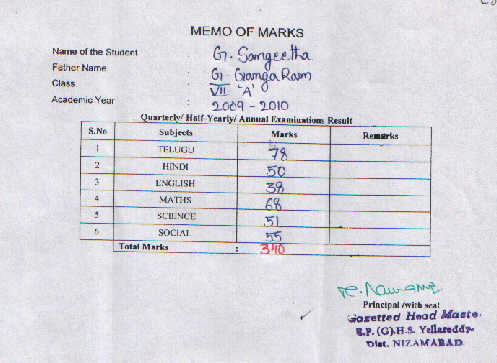 MEMO OF MARKS
Name of the Student : G. Sangeetha
Father Name : G. Ganga Ram
Class : VII 'A'
Academic Year : 2009 - 2010
Quarterly/ Half-Yearly/ Annual Examinations Result
S.No Subjects Marks Remarks
1 TELUGU 78
2 HINDI 50
3 ENGLISH 38
4 MATHS 68
5 SCIENCE 51
6 SOCIAL 55
Total Marks : 340
Principal /with seal
Gazetted Head Maste.
Z.P. (G).H.S. Yellareddy
Dist. NIZAMABAD.